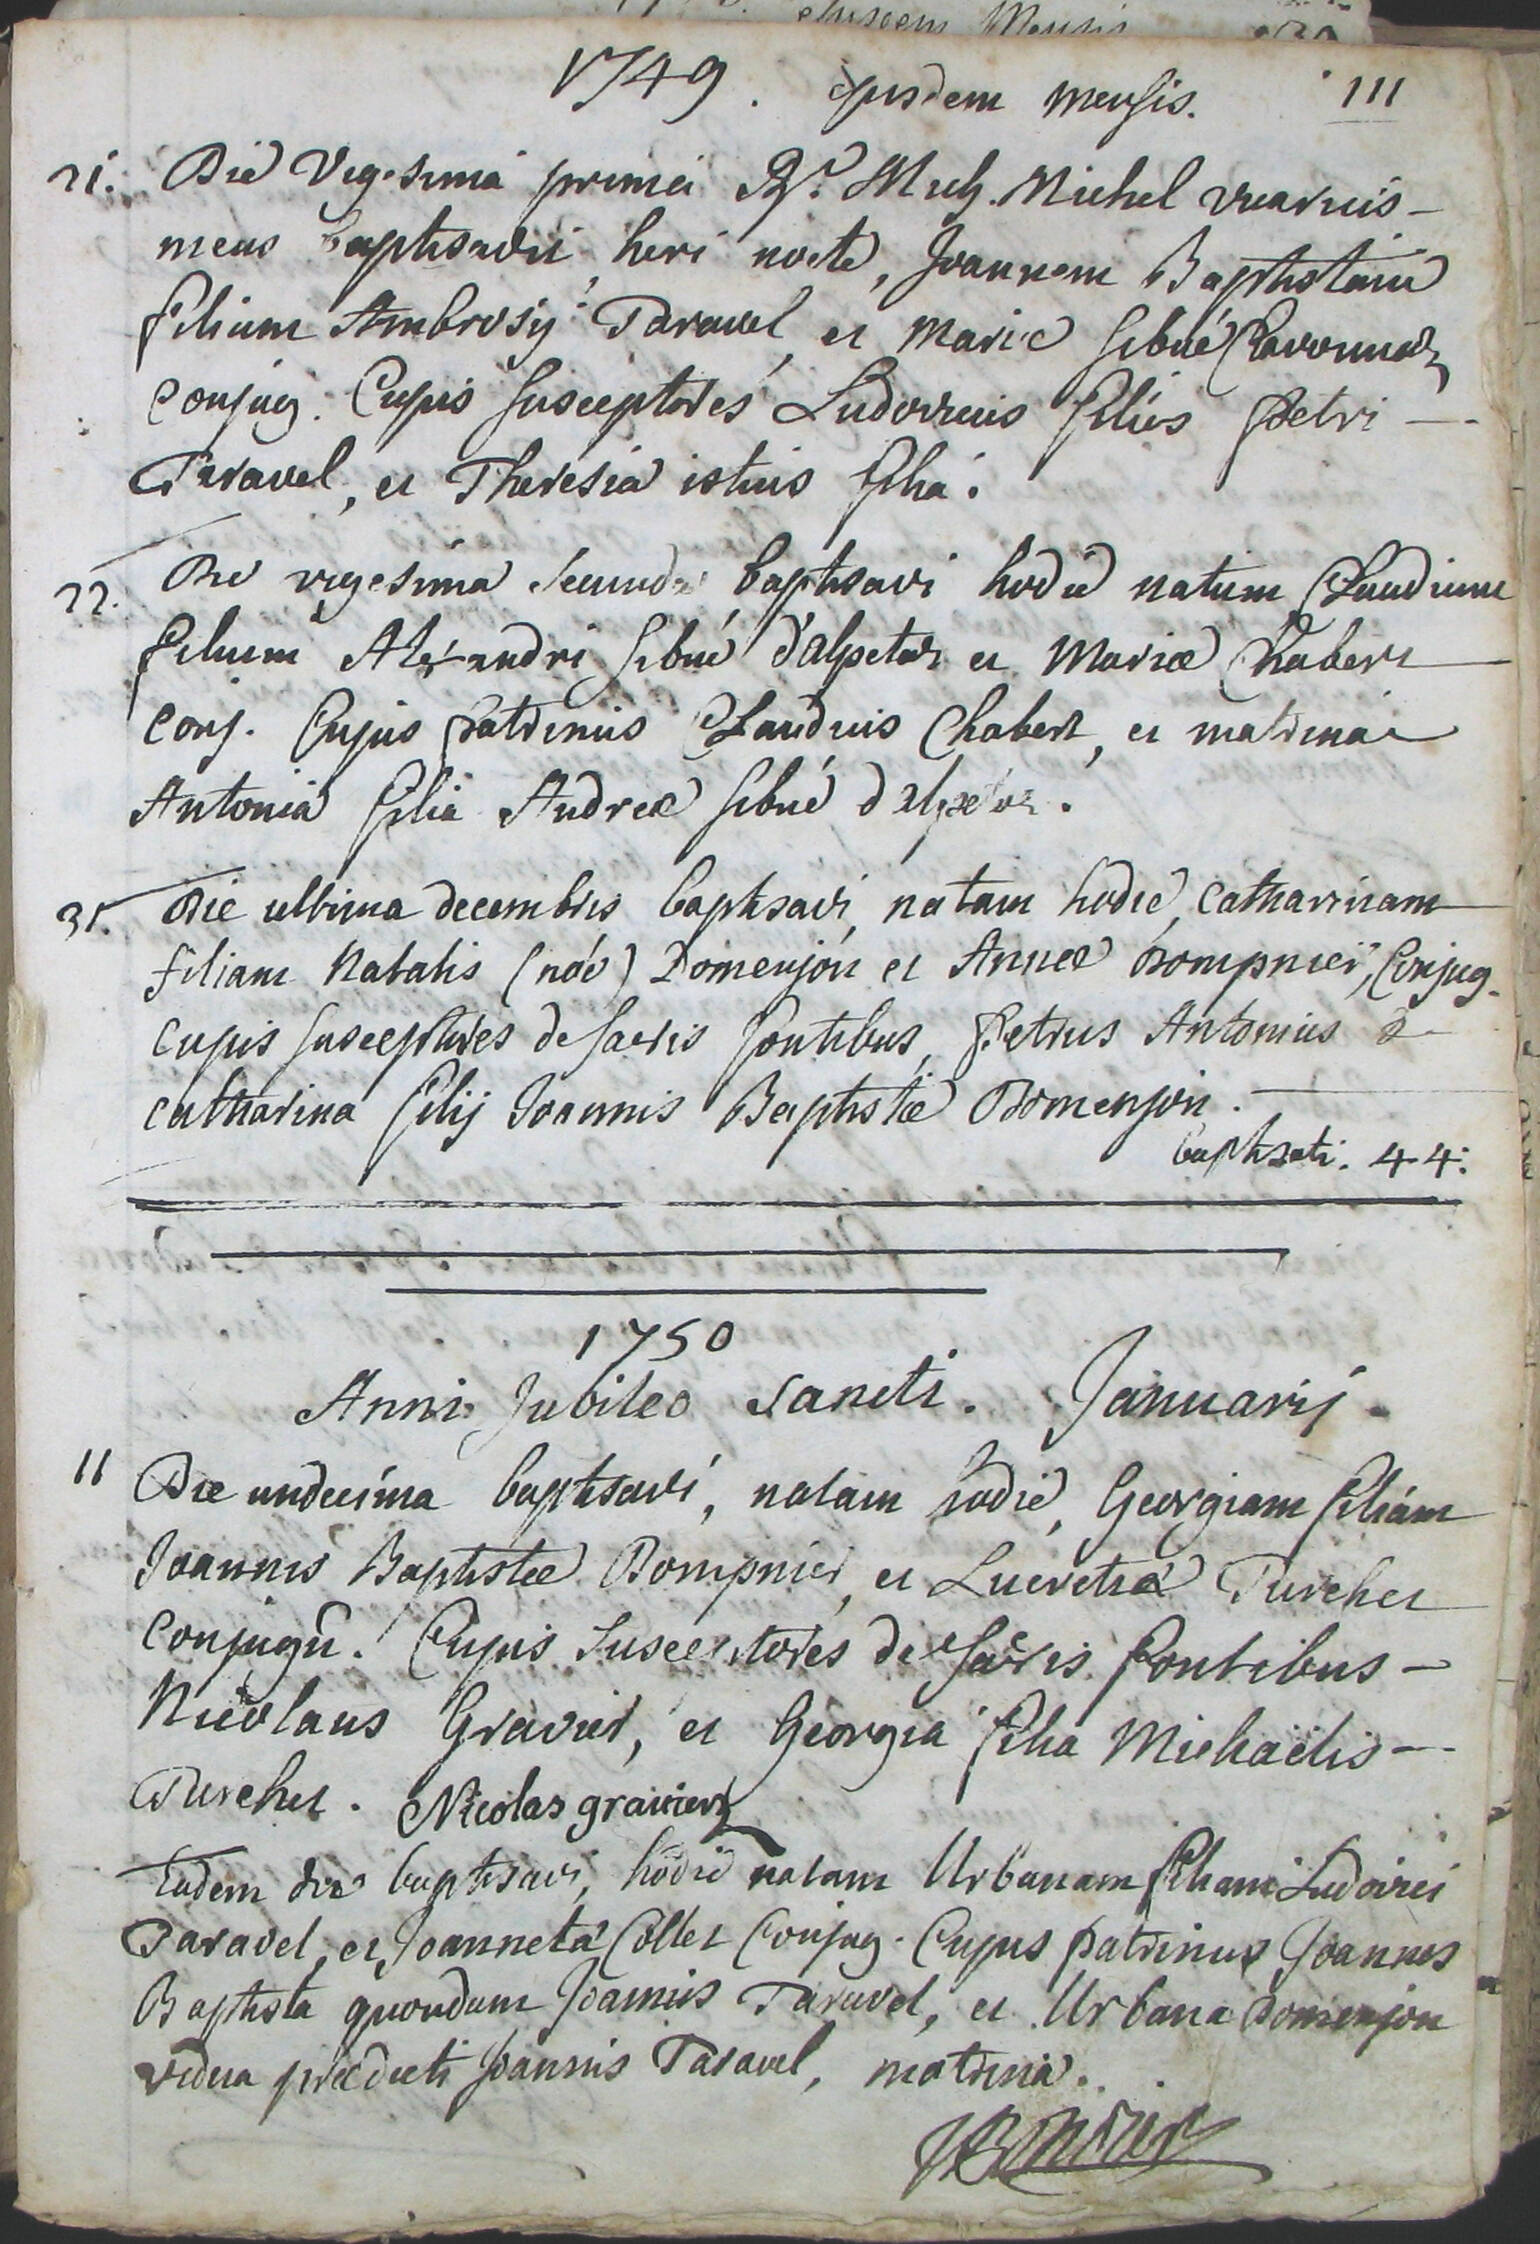 ejusdem Mensis
1749. ejusdem mensis. 111
21. Die Vigesima prima Rd. Michel vicarius
meus baptisavit, heri nocte, Joannem Baptistam
filium Ambrosij Taravel, et Mariæ Sibué
conjug. Cujus susceptores Ludovicus filius Petri
Taravel, et Theresia istius filia.
22. Die vigesima secunda baptisavi hodie natum Claudium
filium Alexandri Sibué d'alpetaz et Mariæ Chabert
conj. Cujus patrinus Claudius Chabert, et matrina
Antonia filia Andreæ Sibué dalpetaz.
31. Die ultima decembris baptisavi, natam hodie, Catharinam
filiam Natalis (noé) Domenjon et Annæ Bompnier, Conjug.
cujus susceptores de sacris fontibus, Petrus Antonius &
catharina filij Joannis Baptistæ Domenjon.
baptisati. 44.
1750
Anni Jubileo Sancti. Januarij.
11 Die undecima baptisavi, natam hodie, Georgiam filiam
Joannis Baptistæ Bompnier, et Lucretiæ Turchet
Conjugū. Cujus Susceptores de Sacris fontibus
Nicolaus Gravier, et Georgia filia Michaëlis
Turchet. Nicolas gravier
Eadem die baptisavi, hodie natam Urbanam filiam Ludovici
Taravel, et Joanneta Collet Conjug. Cujus patrinus Joannes
Baptista quondam Joannis Taravel, et Urbana Domenjon
vidua prædicti Joannis Taravel, matrina.